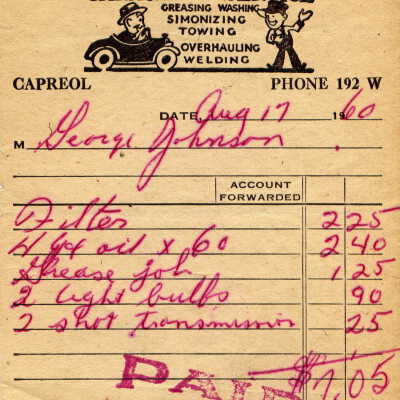 GREASING WASHING
SIMONIZING
TOWING
OVERHAULING
WELDING
CAPREOL PHONE 192 W
DATE Aug 17 1960
M George Johnson
ACCOUNT
FORWARDED
Filter 2 25
4 qt oil x 60 2 40
Grease job 1 25
2 light bulbs 90
2 shot transmission 25
$7.05
PAID